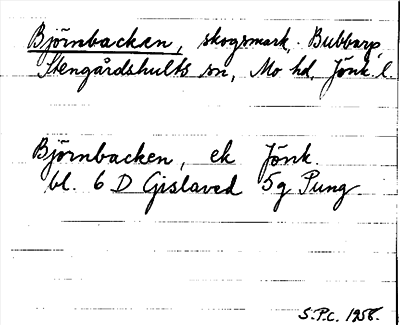 Björnbacken, skogsmark, Bubbarp,
Stengårdshults sn, Mo hd, Jönk. l.
Björnbacken, ek Jönk.
bl. 6 D Gislaved 5g Pung
S.P.C. 1958.